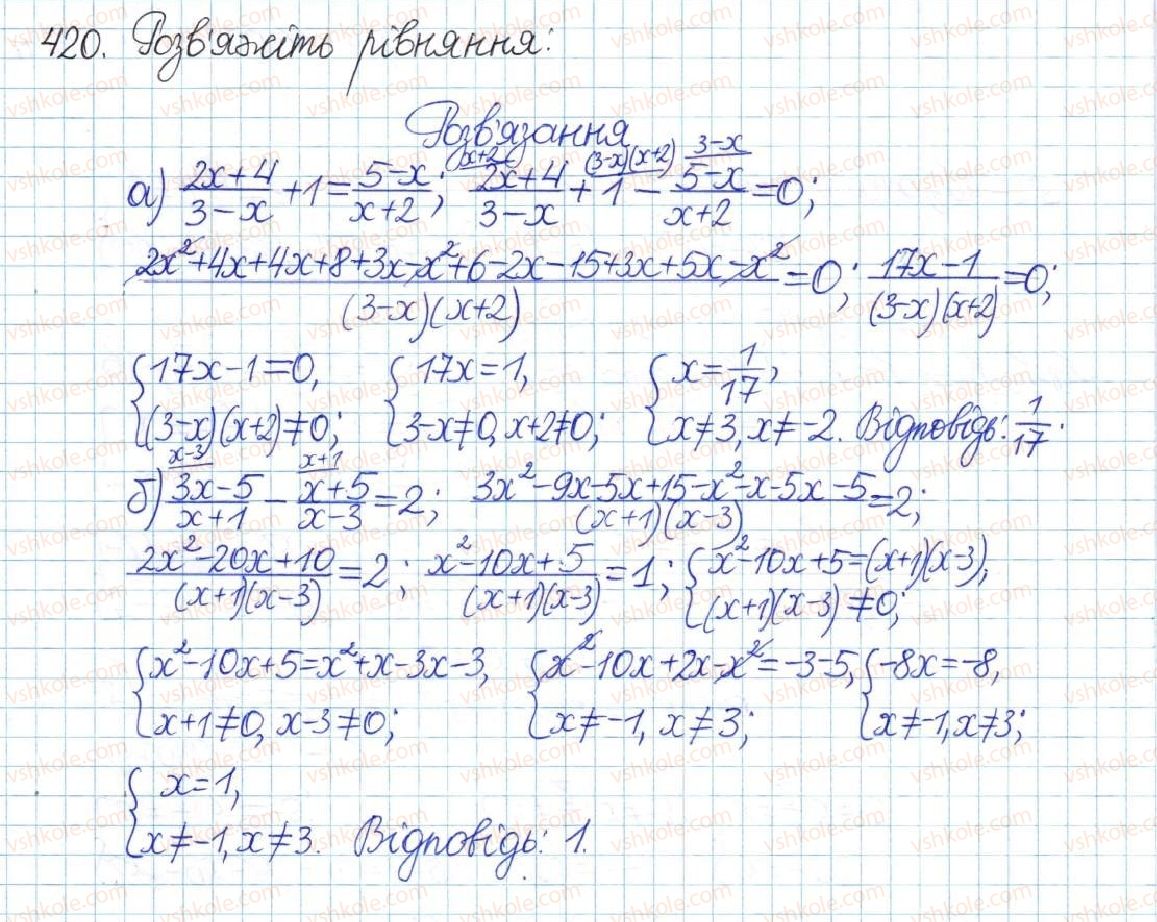 420. Розв'яжіть рівняння:
Розв'язання
а) (2x+4)/(3-x) + 1 = (5-x)/(x+2); (x+2 (2x+4)/(3-x) + (3-x)(x+2) 1 - 3-x (5-x)/(x+2) = 0;
(2x²+4x+4x+8+3x-x²+6-2x-15+3x+5x-x²)/((3-x)(x+2)) = 0; (17x-1)/((3-x)(x+2)) = 0;
{17x-1=0, (3-x)(x+2)≠0; {17x=1, 3-x≠0, x+2≠0; {x=1/17, x≠3, x≠-2. Відповідь: 1/17.
б) x-3 (3x-5)/(x+1) - x+1 (x+5)/(x-3) = 2; (3x²-9x-5x+15-x²-x-5x-5)/((x+1)(x-3)) = 2;
(2x²-20x+10)/((x+1)(x-3)) = 2; (x²-10x+5)/((x+1)(x-3)) = 1; {x²-10x+5=(x+1)(x-3), (x+1)(x-3)≠0;
{x²-10x+5=x²+x-3x-3, x+1≠0, x-3≠0; {x²-10x+2x-x²=-3-5, x≠-1, x≠3; {-8x=-8, x≠-1, x≠3;
{x=1, x≠-1, x≠3. Відповідь: 1.
vshkole.com